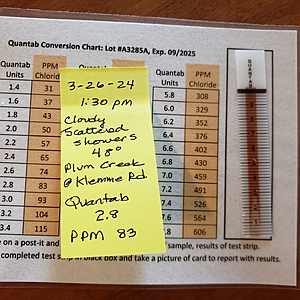 Quantab Conversion Chart: Lot #A3285A, Exp. 09/2025
Quantab Units PPM Chloride
1.4 31
1.6 37
1.8 43
2.0 50
2.2 57
2.4 65
2.6 74
2.8 83
3.0 93
3.2 104
3.4 115
3-26-24
1:30 pm
Cloudy
Scattered
showers
48°
Plum Creek
@ Klemme Rd
Quantab
2.8
PPM 83
Quantab Units PPM Chloride
5.8 308
6.0 329
6.2 352
6.4 376
6.6 402
6.8 430
7.0 459
7.2 491
7.4 526
7.6 564
7.8 606
QUANTAB
e on a post-it and
sample, results of test strip.
completed test strip in black box and take a picture of card to report with results.